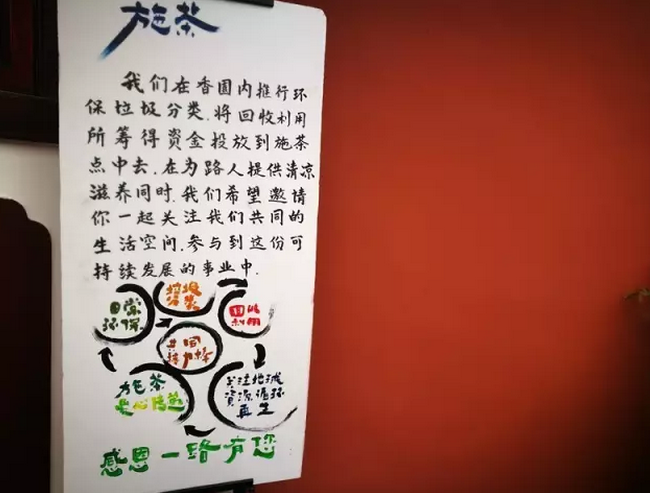 施茶
我们在香园内推行环
保垃圾分类.将回收利用
所筹得资金投放到施茶
点中去.在为路人提供清凉
滋养同时.我们希望邀请
你一起关注我们共同的
生活空间.参与到这份可
持续发展的事业中.
垃圾
分类
日常
环保
回收
利用
共同
施茶
关注地球
资源循环
再生
感恩一路有您